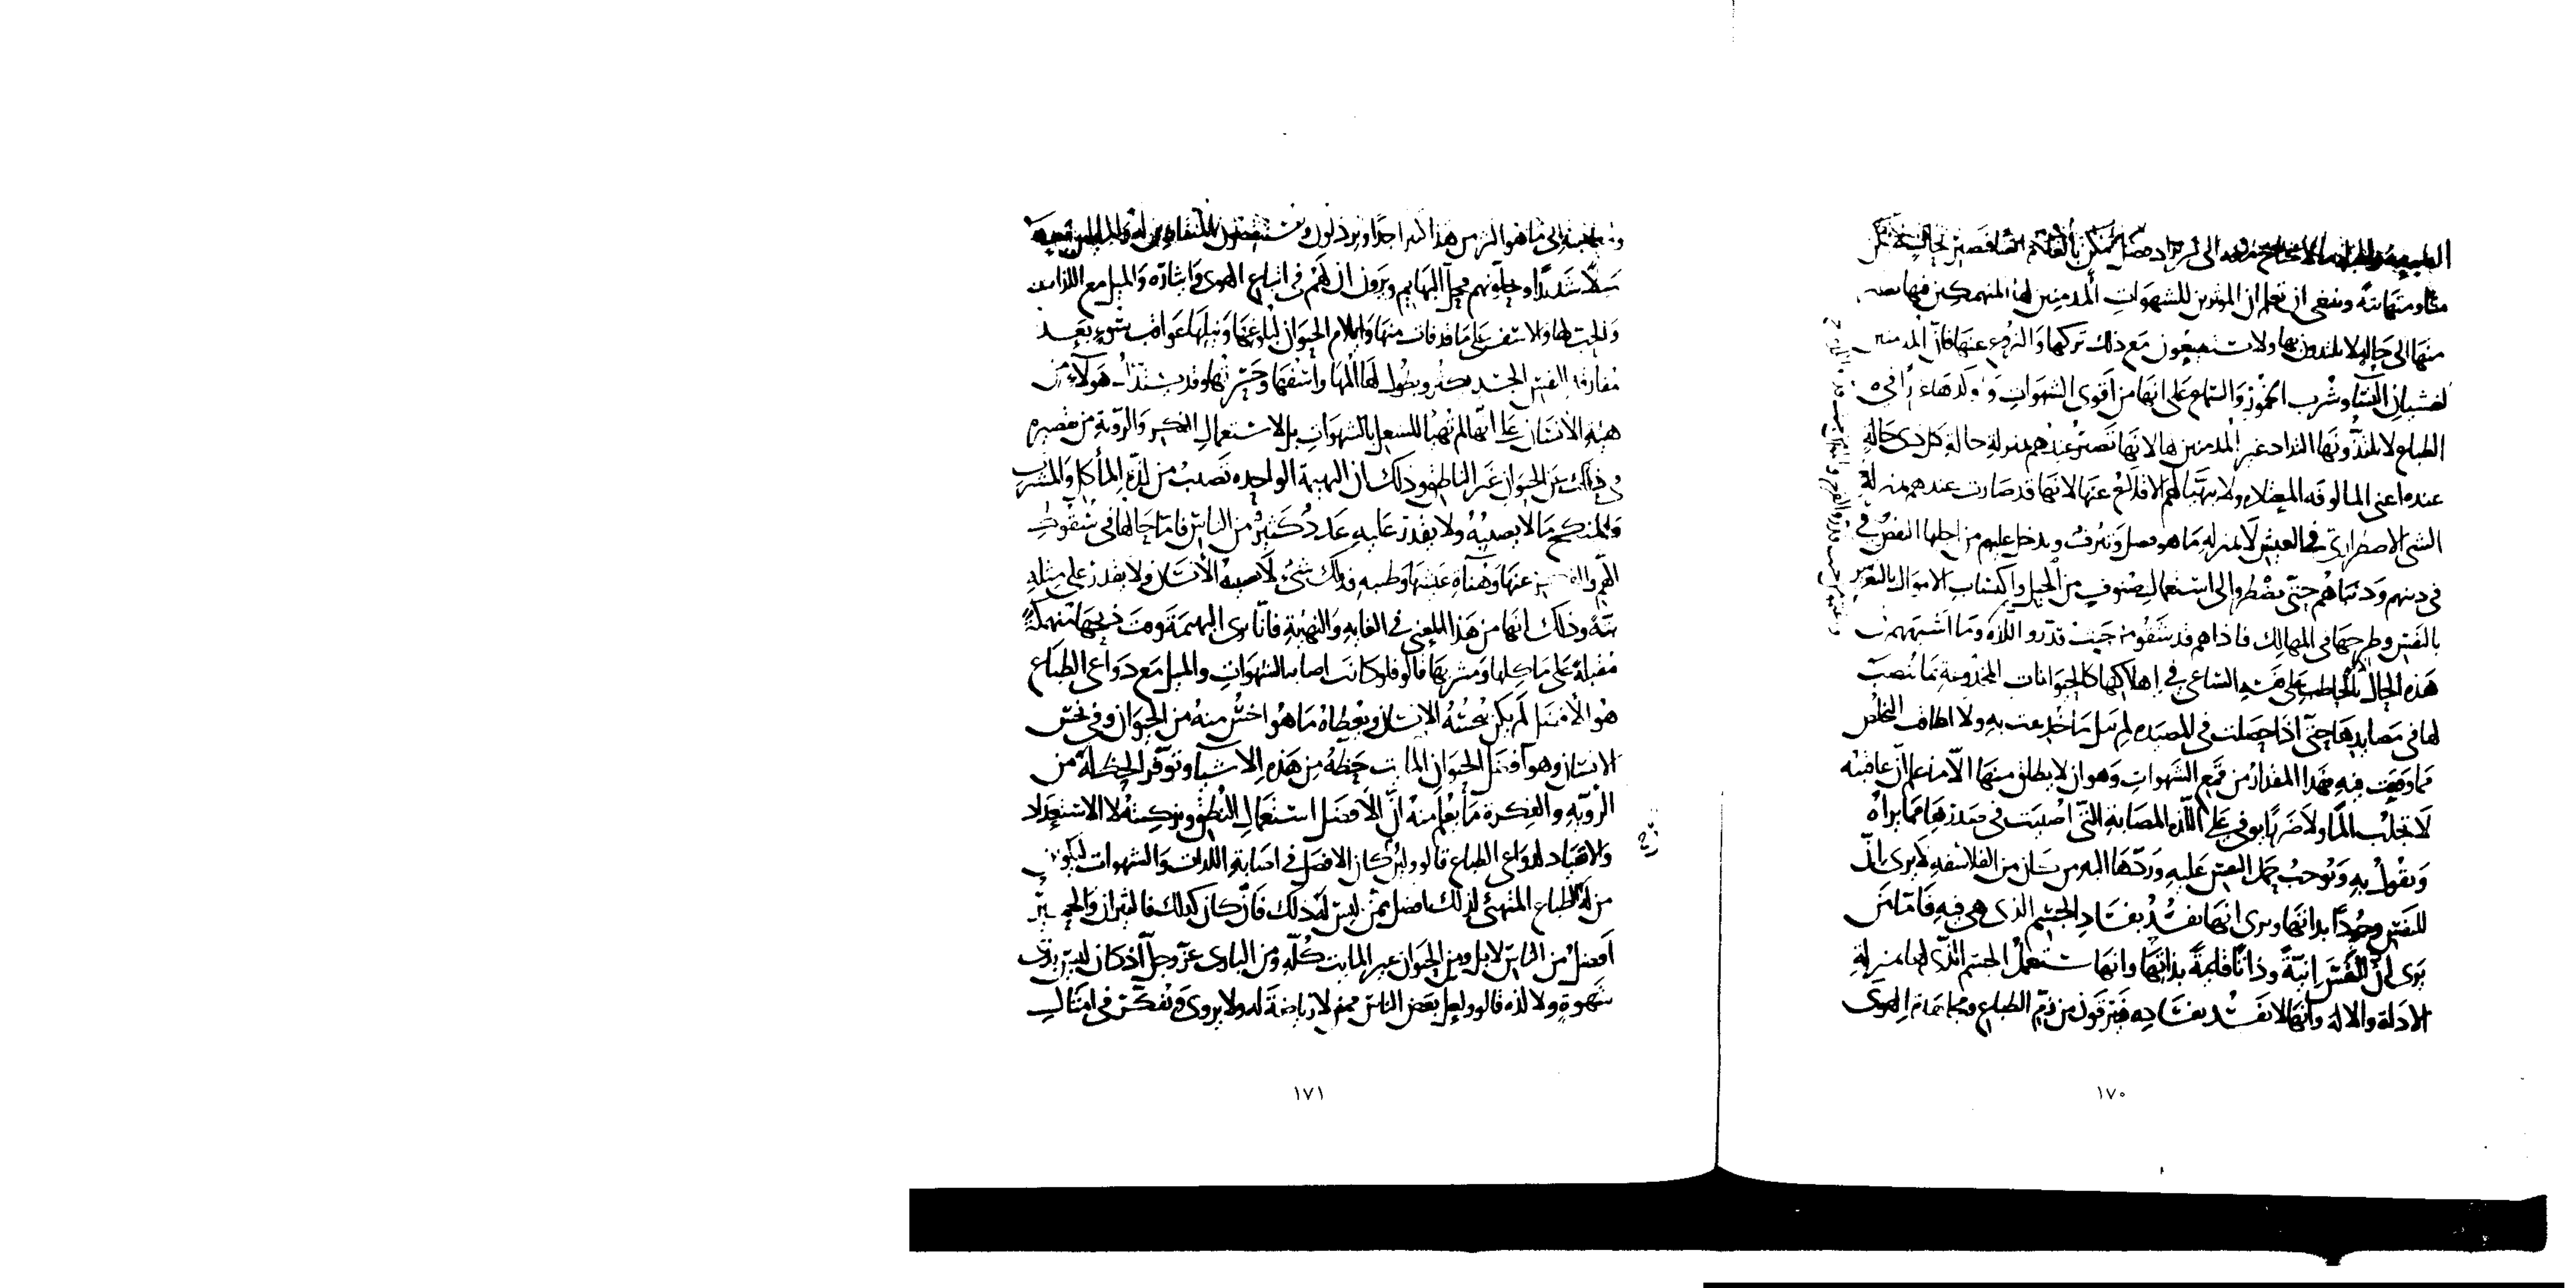 منها الى حالة لا يلتذون بها ولا يستطيعون مع ذلك تركها والنزوع عنها فان المدمنين
لغشيان النساء وشرب الخمور والسماع على انها من اقوى الشهوات
الطباع لا يلتذونها التذاذ غير المدمنين لها لانها تصير عندهم بمنزلة حالة كل ذي حالة
عنده اعني المالوفة المعتادة ولا يتهيا لهم الاقلاع عنها لانها قد صارت عندهم بمنزلة
الشي الاضطراري في العيش لا بمنزلة ما هو فضل وتترف ويدخل عليهم من اجلها النقص في
دينهم ودنياهم حتى يضطروا الى استعمال صنوف من الحيل واكتساب الاموال بالتغرير
بالنفس وطرحها في المهالك فاذا هم قد شقوا من حيث قدروا اللذة وما اشبههم في
هذه الحال بالحاطب على نفسه الساعي في اهلاكها كالحيوانات المخدوعة بما ينصب
لها في مصايدها حتى اذا حصلت في المصيدة لم تنل ما خدعت به ولا اطاقت التخلص
مما وقعت فيه فهذا المقدار من قمع الشهوات وهو ان لا يطلق منها الا ما علم ان عاقبته
لا تجلب الما ولا ضررا يوفي على اللذة المصابة التي اصيبت في صدرها مما يراه
ويقول به ويوجب حمل النفس عليه وردها اليه من كان من الفلاسفة لا يرى ان
للنفس وجودا بذاتها ويرى انها تفسد بفساد الجسم الذي هي فيه فاما من
يرى ان للنفس انية وذاتا قائمة بذاتها وانها تستعمل الجسم الذي لها بمنزلة
الاداة والالة وانها لا تفسد بفساده فيترقون من زم الطباع ومجاهدة الهوى
ومخالفته الى ما هو اكثر من هذا كثيرا جدا ويرذلون ويستنقصون المنقادين له والمايلين معه
تنقصا شديدا ويحلونهم محل البهايم ويرون ان لهم في اتباع الهوى وايثاره والميل مع اللذات
والحب لها والاسف على ما قد فات منها وايلام الحيوان لبلوغها ونيلها عواقب سوء بعد
مفارقة النفس الجسد يكثر ويطول لها المها واسفها وحسرتها وقد يستدل هولاء من
هيئة الانسان على انه لم يتهيا للشغل بالشهوات بل لاستعمال الفكر والروية من تقصيره
في ذلك عن الحيوان غير الناطق وذلك ان البهيمة الواحدة تصيب من لذة الماكل والمشرب
والمنكح ما لا يصيبه ولا يقدر عليه عدد كثير من الناس فاما حالها في سقوط
الهم والفكر عنها وهناة عيشها وطيبه فذلك شيء لا يصيبه الانسان ولا يقدر على مثله
بتة وذلك انها من هذا المعنى في الغاية والنهاية فانا نرى البهيمة وقت ذبحها منهمكة
مقبلة على ماكلها ومشربها قالوا فلو كانت اصابة الشهوات والميل مع دواعي الطباع
هو الافضل لم يكن يبخسه الانسان ويعطاه ما هو اخس منه من الحيوان وفي بخس
الانسان وهو افضل الحيوان المايت حظه من هذه الاشياء وتوفر الحظ له من
الروية والفكرة ما يعلم منه ان الافضل استعمال النطق وتزكيته لا الاستعباد
والانقياد لدواعي الطباع قالوا ولين كان الافضل في اصابة اللذات والشهوات ليكونن
من له الطباع المتهيئ لذلك افضل ممن ليس له ذلك فان كان كذلك فالثيران والحمير
افضل من الناس لا بل ومن الحيوان غير المايت كله ومن الباري عز وجل اذ كان ليس بذي
شهوة ولا لذة قالوا ولعل بعض الناس ممن لا رياضة له ولا يروي ويفكر في امثال
١٧٠
١٧١